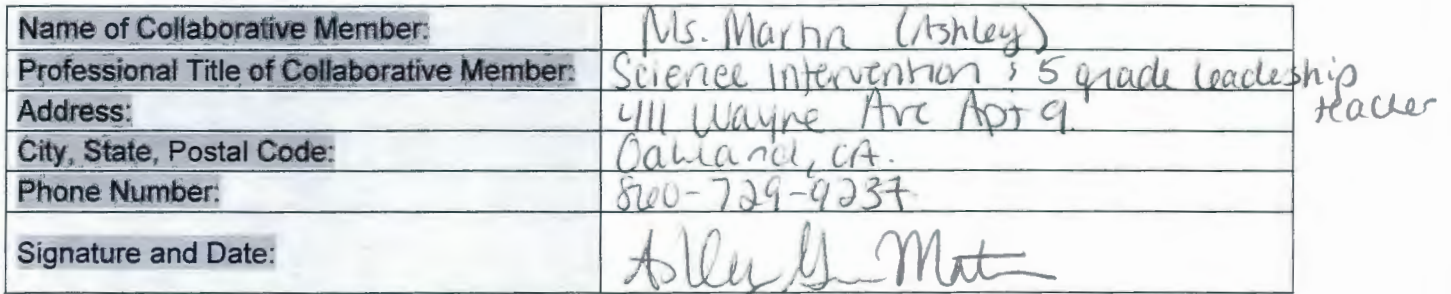 Name of Collaborative Member: Ms. Martin (Ashley)
Professional Title of Collaborative Member: Science Intervention & 5 grade leadeship teacher
Address: 411 Wayne Ave Apt 9
City, State, Postal Code: Oakland, CA.
Phone Number: 860-729-9237
Signature and Date: